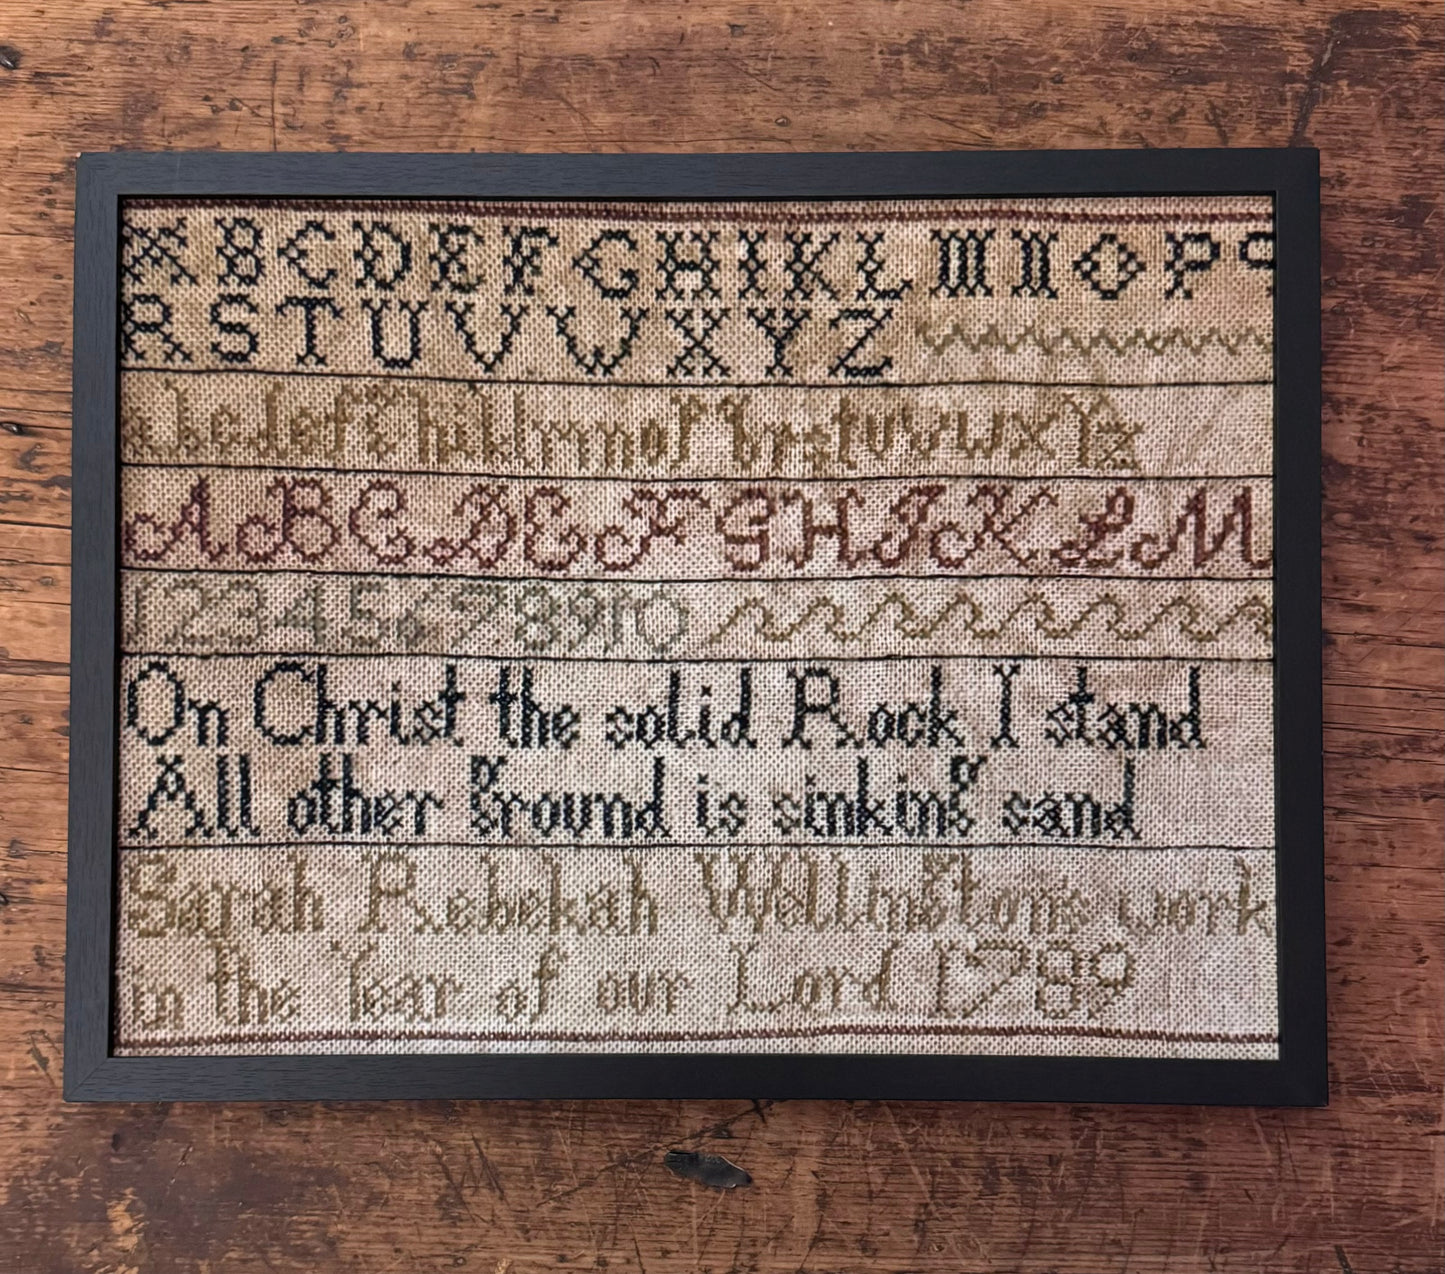 A B C D E F G H I K L M N O P Q
R S T U V W X Y Z
a b c d e f g h i k l m n o p q r s t u v w x y z
A B C D E F G H I K L M
1 2 3 4 5 6 7 8 9 10
On Christ the solid Rock I stand
All other ground is sinking sand
Sarah Rebekah Wellington's work
in the Year of our Lord 1789